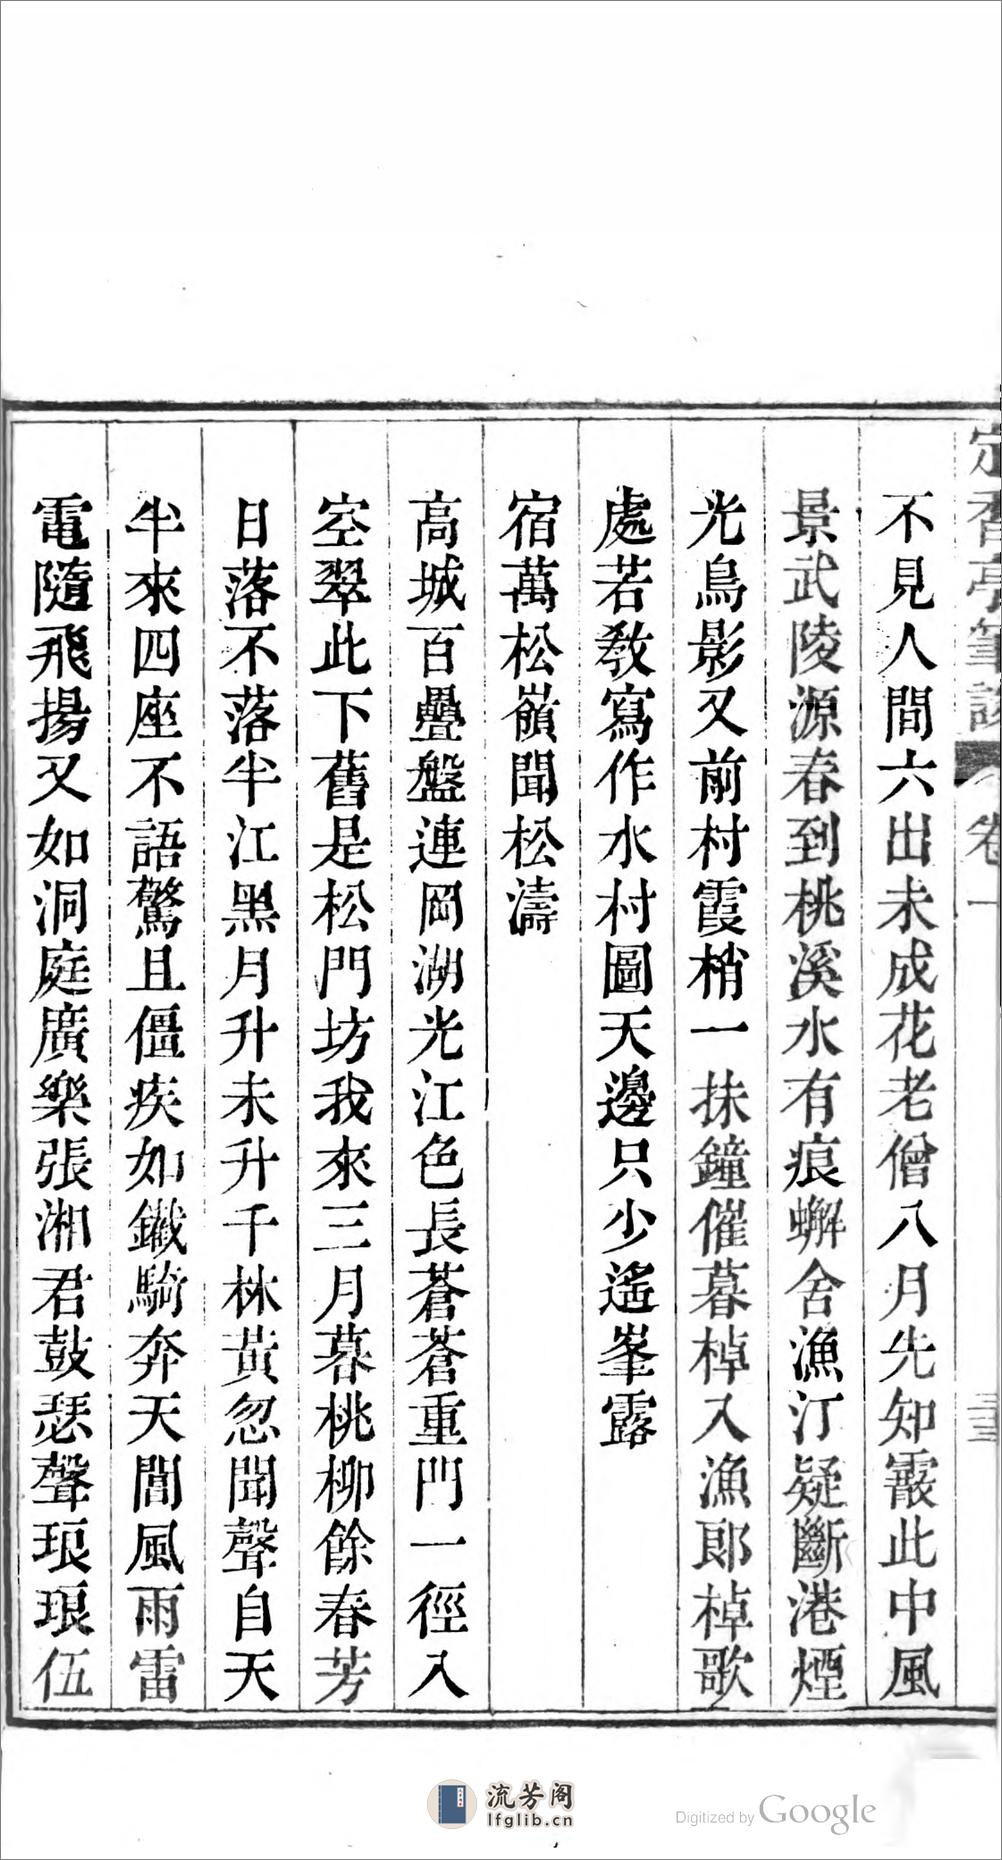 定香亭筆談 卷一
不見人間六出未成花老僧八月先知霰此中風
景武陵源春到桃溪水有痕蠏舍漁汀疑斷港煙
光鳥影又前村霞梢一抹鐘催暮棹入漁郎棹歌
處若教寫作水村圖天邊只少遙峯露
宿萬松嶺聞松濤
高城百疊盤連岡湖光江色長蒼蒼重門一徑入
空翠此下舊是松門坊我來三月暮桃柳餘春芳
日落不落半江黑月升未升千林黃忽聞聲自天
半來四座不語驚且僵疾如鐵騎奔天閶風雨雷
電隨飛揚又如洞庭廣樂張湘君鼓瑟聲琅琅伍
流芳阁
lfglib.cn
Digitized by Google